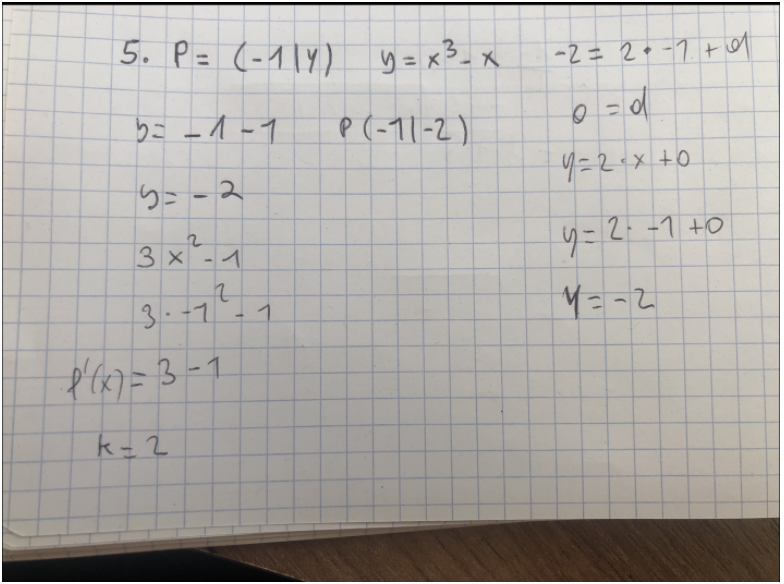 5. P = (-1|y) y = x³ - x
y = -1 - 1 P(-1|-2)
y = -2
3x² - 1
3 · -1² - 1
f'(x) = 3 - 1
k = 2
-2 = 2 · -1 + d
0 = d
y = 2 · x + 0
y = 2 · -1 + 0
y = -2